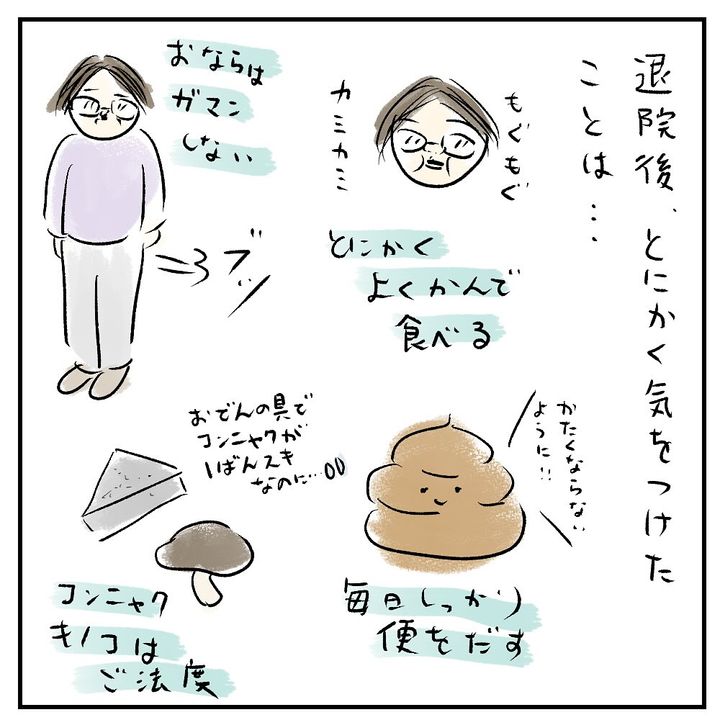 退院後、とにかく気をつけた
ことは…
もぐもぐ
カミカミ
とにかく
よくかんで
食べる
おならは
ガマン
しない
ブッ
かたくならない
ように!!
毎日しっかり
便をだす
おでんの具で
コンニャクが
1ばんスキ
なのに…
コンニャク
キノコは
ご法度